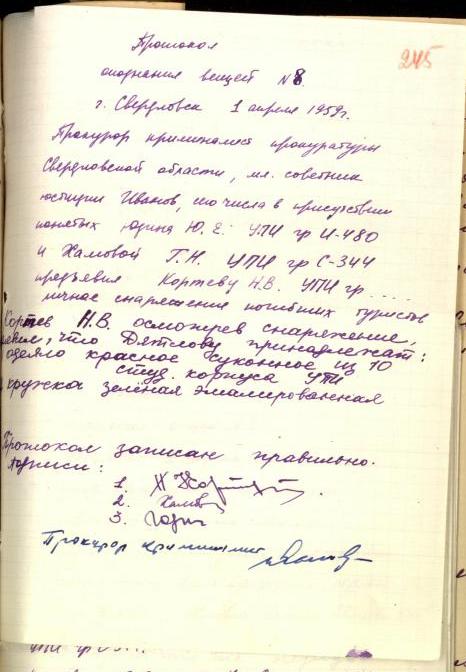 245
Протокол
опознания вещей N 8.
г. Свердловск 1 апреля 1959г.
Прокурор криминалист прокуратуры
Свердловской области, мл. советник
юстиции Иванов, сего числа в присутствии
понятых Юдина Ю. Е. УПИ гр И-480
и Хамовой Г.Н. УПИ гр С-344
предъявил Кортеву Н.В. УПИ гр ....
личное снаряжение погибших туристов
Кортев Н.В. осмотрев снаряжение,
что Дятлову принадлежат:
одеяло красное суконное из 10
студ. корпуса УПИ
кружка зелёная эмалированная
Протокол записан правильно.
Подписи:
1.
2. Хамов
3.
Прокурор криминалист
УПИ гр